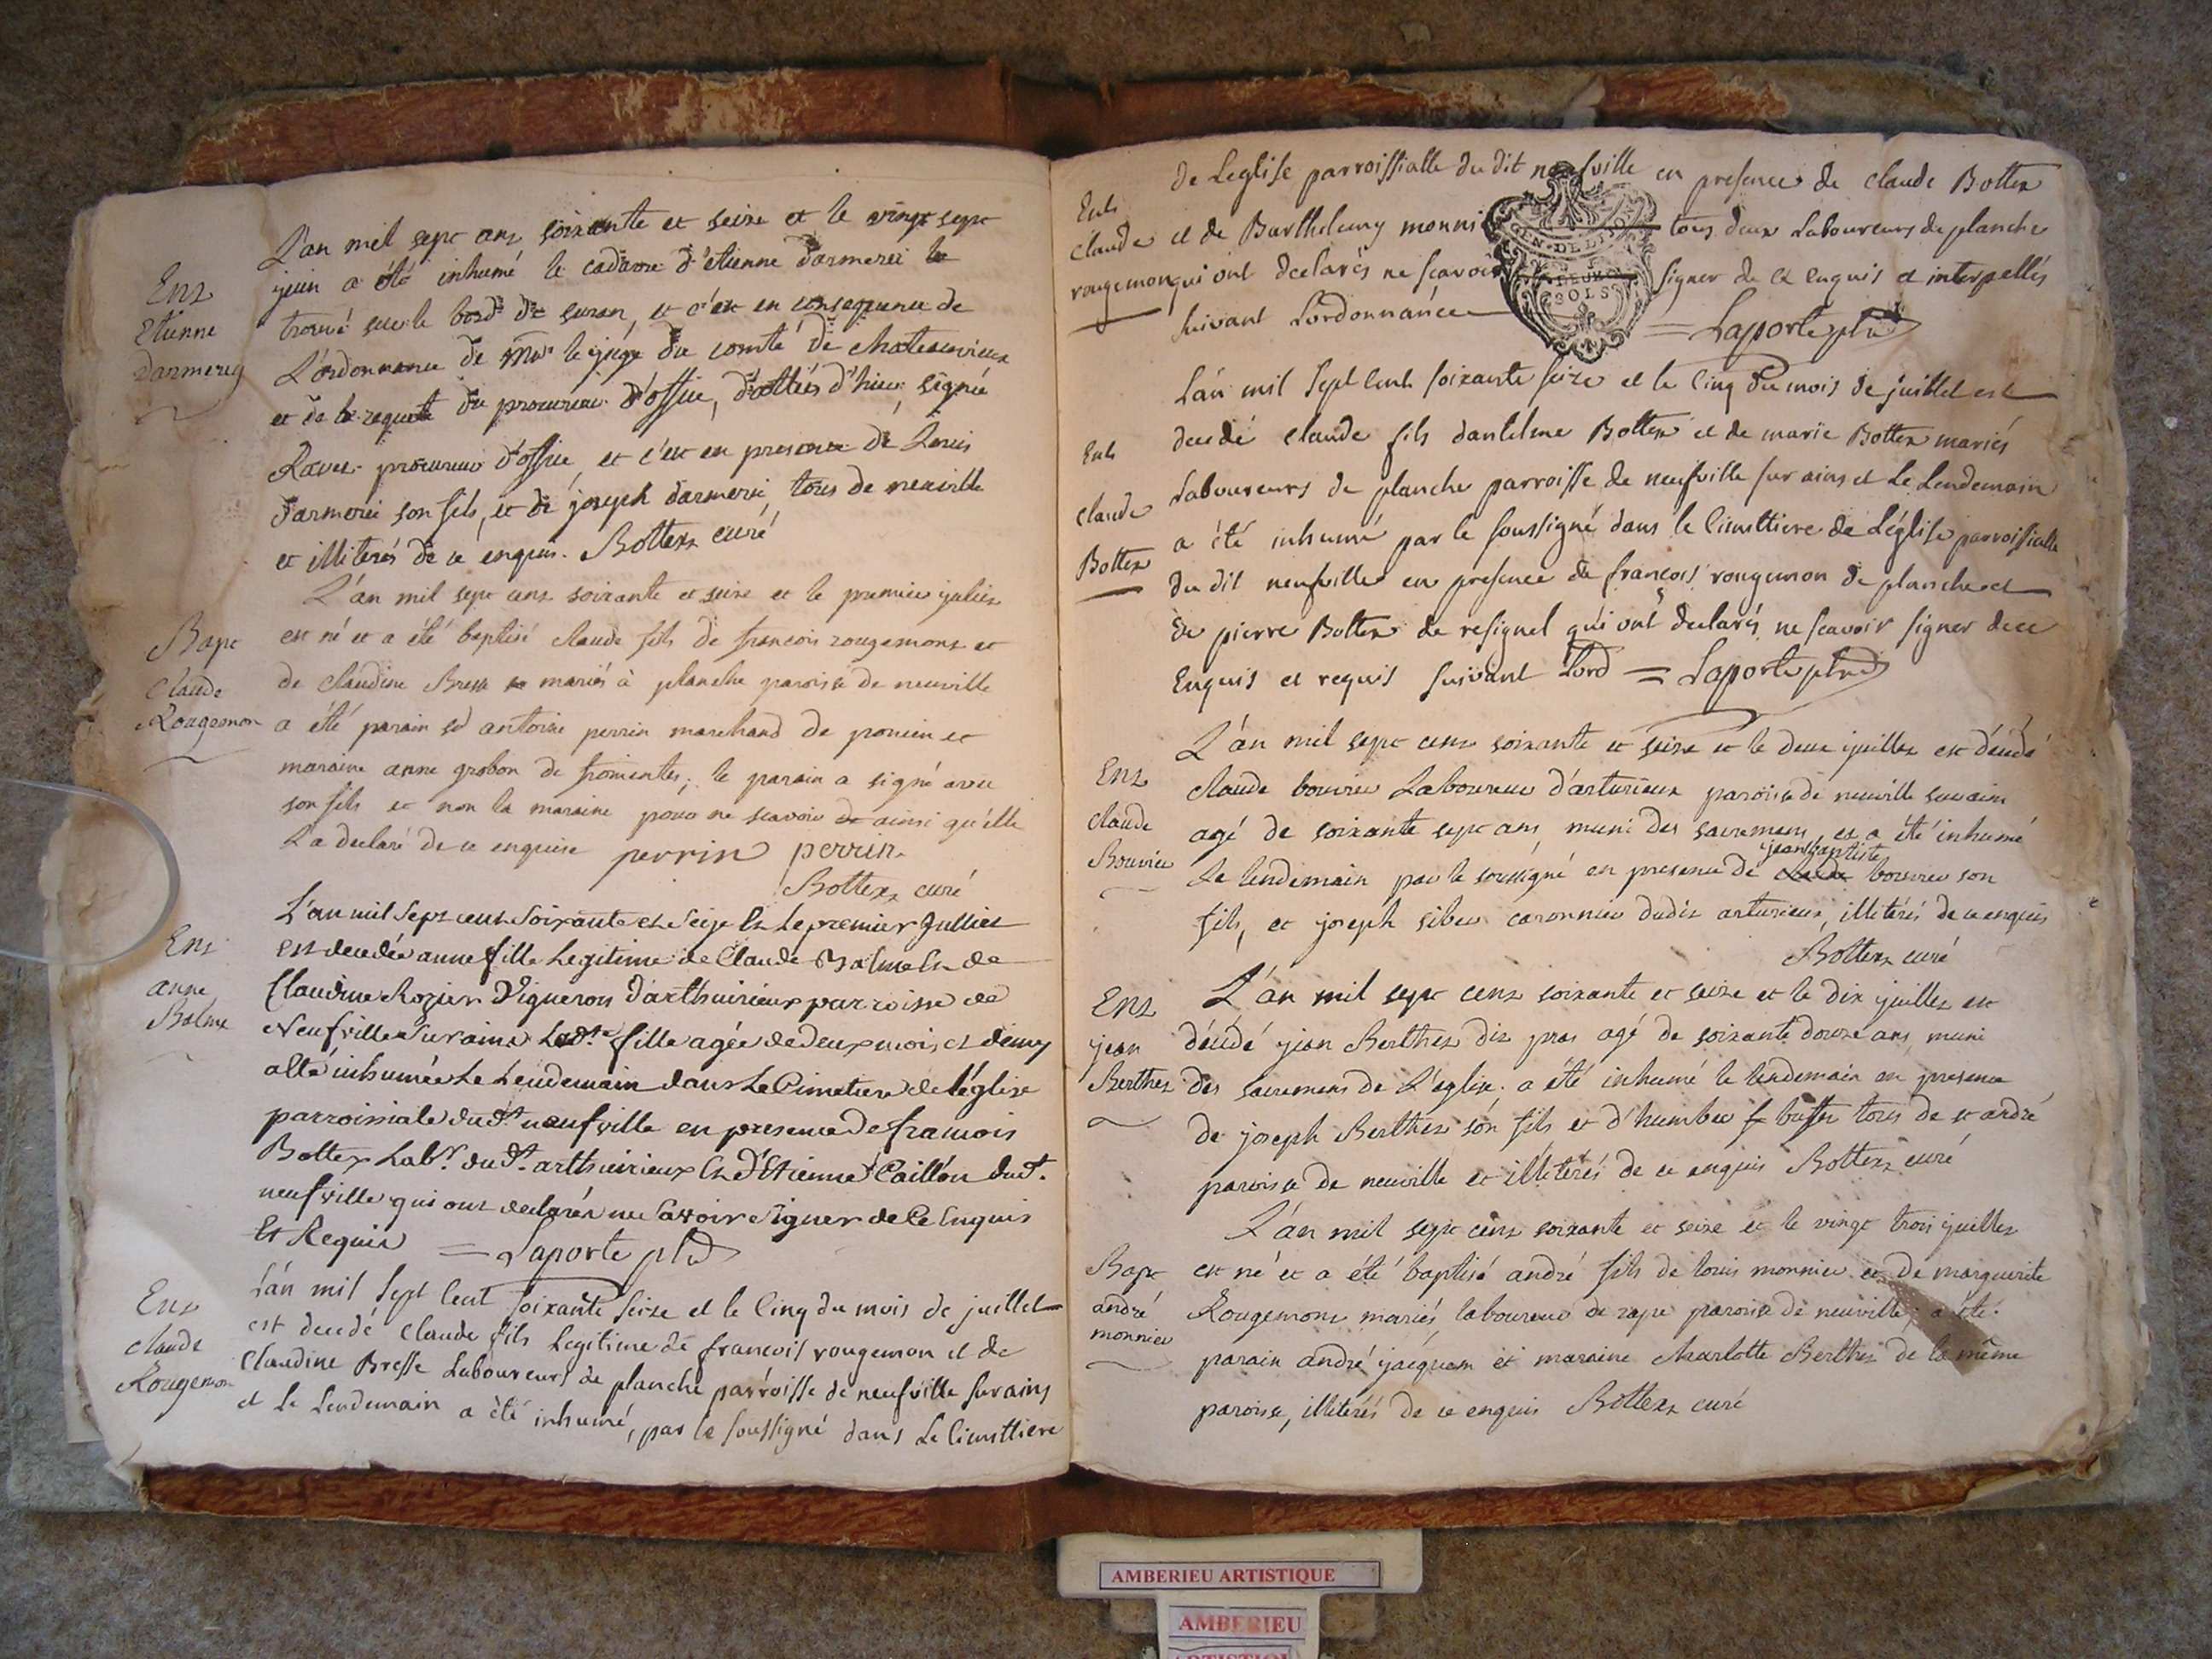 L'an mil sept cens soixante et seize et le vingt sept
Ent
Etienne
Darmerey
juin a été inhumé le cadavre d'étienne darmerei
trouvé sur le bord de suran, et c'est en consequence de
L'ordonnance de Mr le juge du comté de chateauvieux
et de la requete du procureur d'office, d'hier, signée
Ravet procureur d'office, et c'est en presence de Louis
darmerei son fils, et de joseph darmerei tous de neuville
et illiterés de ce enquis. Bottex curé
L'an mil sept cens soixante et seize et le premier juliex
Bapt
Claude
Rougemon
est né et a été baptisé claude fils de francois rougemont et
de claudine Bresse mariés à planche paroisse de neuville
a été parain sr antoine perrin marchand de poncin et
maraine anne grobon de fromentes; le parain a signé avec
son fils et non la maraine pour ne scavoir de ainsi qu'elle
L'a declaré de ce enquise perrin perrin
Bottex curé
L'an mil sept cent soixante et seize et le premier Julliet
Ent
anne
Balme
est decedée anne fille Legitime de Claude Balme et de
Claudine Rozier Vigneron d'arthuirieux parroisse de
Neufville sur ains Ladte fille agée de deux mois et demy
a été inhumée Le Lendemain dans Le Cimetiere de l'église
parroissiale dudt neufville en presence de francois
Bottex Labr dudt arthuirieux et d'Etienne Caillon dudt
neufville qui ont declarés ne savoir signer de Ce Enquis
Et Requis = Laporte ptre
L'an mil sept cent soixante seize et le cinq du mois de juillet
Ent
claude
Rougemon
est decedé claude fils legitime de francois rougemon et de
Claudine Bresse Laboureurs de planche parroisse de neufville sur ains
et le lendemain a été inhumé, par le soussigné dans Le cimettiere
de Leglise parroissialle du dit neufville en presence de claude Bottex
Ent
claude
rougemon
et de Barthelemy monni tous deux Laboureurs de planche
qui ont declarés ne scavoir signer de ce enquis et interpellés
suivant L'ordonnance = Laporte ptre
GEN. DE LION
SOLS
L'an mil sept cent soixante seize et le cinq du mois de juillet est
Ent
Claude
Bottex
decedé claude fils dantelme Bottex et de marie Bottex mariés
Laboureurs de planche parroisse de neufville sur ains et Le Lendemain
a été inhumé par le soussigné dans le cimettiere de L'église parroissialle
du dit neufville en presence de francois rougemon de planche et
de pierre Bottex de resignel qui ont declarés ne scavoir signer de ce
Enquis et requis suivant Lord = Laporte ptre
L'an mil sept cens soixante et seize et le deux juillex est décédé
Ent
claude
Bouvier
claude bouvier Laboureur d'arturieux paroisse de neuville sur ains
agé de soixante sept ans, muni des sacremens, et a été inhumé
jean baptiste
Le lendemain par le soussigné en presence de claude bouvier son
fils, et joseph sibus caronnier dudit arturieux, illitérés de ce enquis
Bottex curé
L'an mil sept cens soixante et seize et le dix juillex est
Ent
jean
Berthex
décédé jean Berthex dit pras agé de soixante douze ans, muni
des sacremens de L'eglise; a été inhumé le lendemain en presence
de joseph Berthex son fils et d'humber tous de st andré
paroisse de neuville et illitérés de ce enquis Bottex curé
L'an mil sept cens soixante et seize et le vingt trois juillex
Bapt
andré
monnier
est né et a été baptisé andré fils de louis monnier et de marguerite
Rougemont mariés laboureur de rape paroisse de neuville; a été
parain andré jacquem et maraine charlotte Berthex de la même
paroisse, illiterés de ce enquis Bottex curé
AMBERIEU ARTISTIQUE
AMBERIEU
ARTISTIQUE